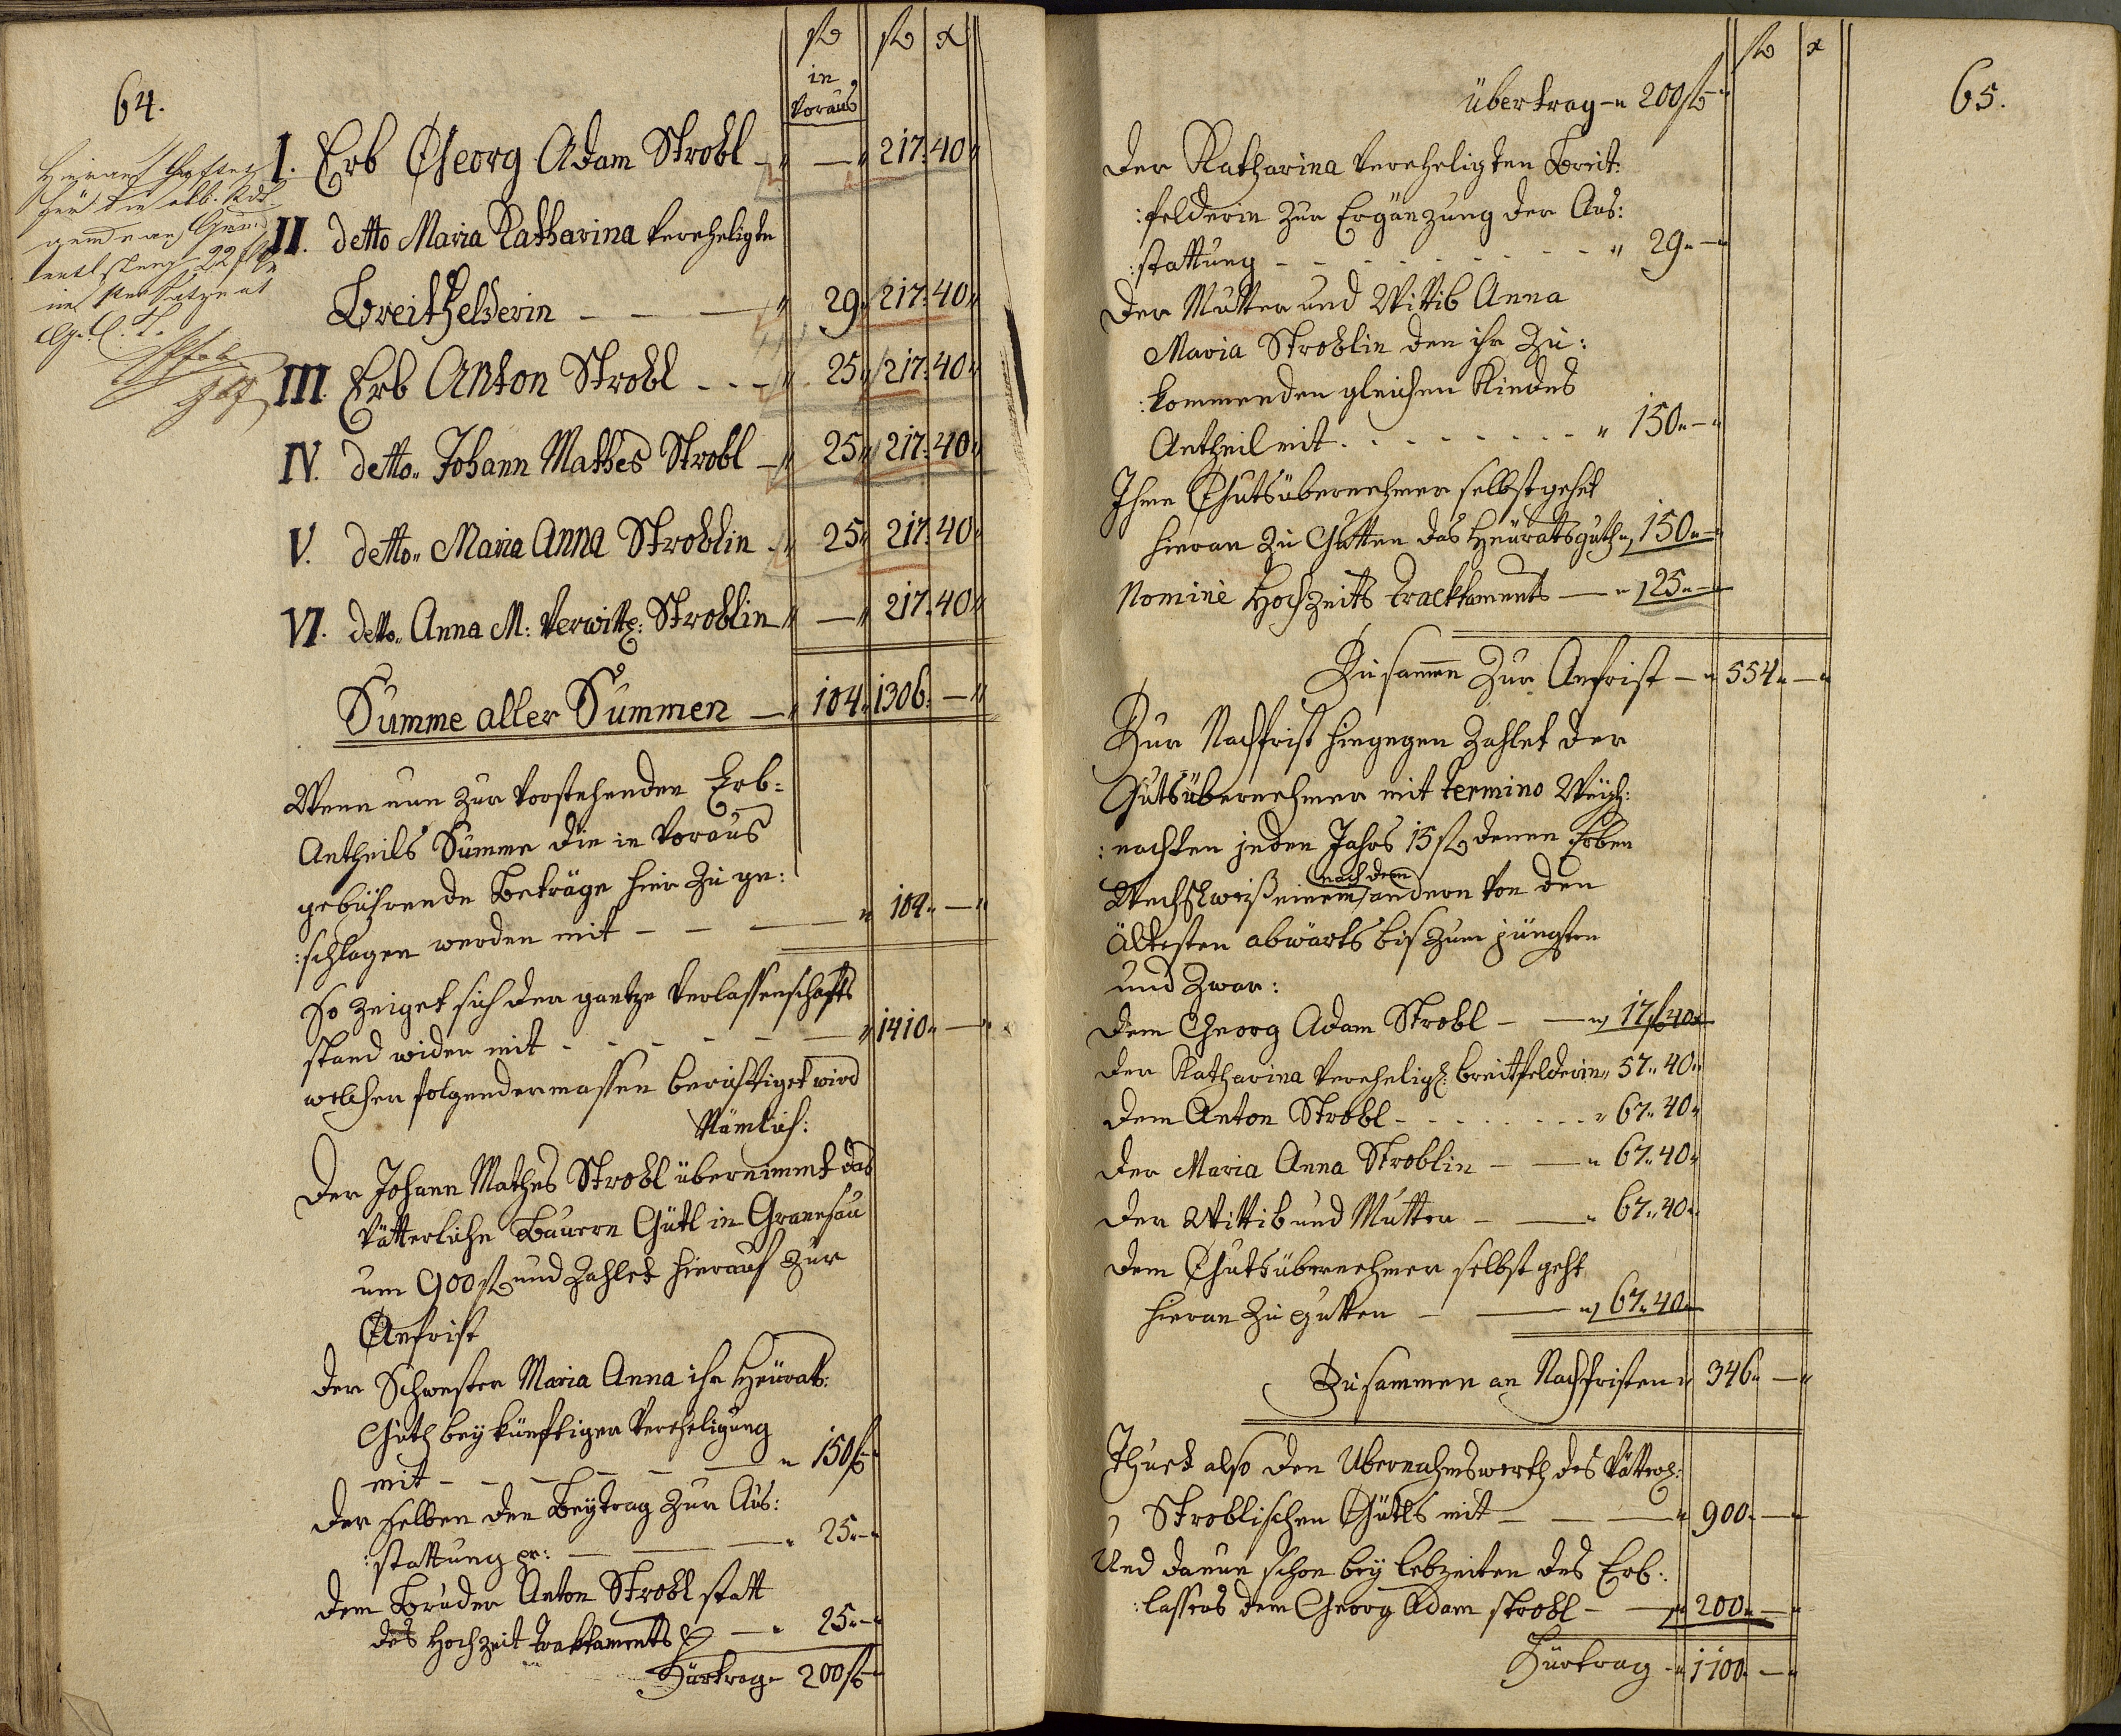 64.
fl fl x
in
Voraus
I. Erb Georg Adam Strobl — " — " 217. 40 "
II. detto Maria Katharina Vereheligte
Breithfelderin — — — " 29 " 217. 40 "
III. Erb Anton Strobl - - - " 25 " 217. 40 "
IV. detto " Johann Mathes Strobl — " 25 " 217. 40 "
V. detto " Maria Anna Stroblin - " 25 " 217. 40 "
VI. detto " Anna M: Verwitt: Stroblin " — " 217. 40 "
Summe aller Summen — " 104. 1306. — "
Wenn nun zur vorstehenden Erb=
Antheils Summe die in Voraus
gebührende Beträge hier zu ge:
:schlagen werden mit — — — " 104 " — "
So zeiget sich der gantze Verlassenschafts
stand wider mit - - - - — " 1410 " — "
welcher folgendermassen berichtiget wird
Nämlich:
Der Johann Mathes Strobl übernimmt das
Vätterliche Bauern Gütl in
um 900 fl und zahlet hierauf zur
Anfrist
Der Schwester Maria Anna ihr Heürats:
Guth bey künftiger Vereheligung
mit — — — — — " 150 fl
Der selben den Beytrag zur Aus:
:stattung pr: — — — " 25 " —
Dem Bruder Anton Strobl statt
des Hochzeit Tracktaments — " 25 " —
Fürtrag " 200 fl
65.
fl x
Übertrag — " 200 fl
Der Katharina Vereheligten Breit:
:felderin zur Ergänzung der Aus:
:stattung - - - - - - - - " 29 " —
Der Mutter und Wittib Anna
Maria Stroblin den ihr zu:
:kommenden gleichen Kindes
Antheil mit - - - - - - - - " 150 " — "
Ihme Gutsübernehmer selbst gehet
hieran zu Gutten das Heüratsguth " 150 " — "
Nomine Hochzeits Tracktaments — " 25 " —
Zusammen zur Anfrist — " 554 " — "
Zur Nachfrist hingegen zahlet der
Gutsübernehmer mit Termino Weÿh:
:nachten jeden Jahrs 15 fl denen Erben
nach dem
Wechslweiß einem andern von den
Ältesten abwärts bis zum jüngsten
und zwar:
Dem Georg Adam Strobl — — " 17 fl 40 x
Der Katharina Vereheligt: Breitfelderin " 57 " 40 "
Dem Anton Strobl - - - - - - - " 67 " 40 "
Der Maria Anna Stroblin — — " 67 " 40 "
Der Wittib und Mutter — — " 67 " 40 "
Dem Gutsübernehmer selbst geht
hieran zu gutten — — " 67 " 40 "
Zusammen an Nachfristen " 346 " — "
Thuet also den Übernahmswerth des Vätterl:
Stroblischen Gütls mit — — — " 900 " — "
Und dann schon bey Lebzeiten des Erb:
:lassers dem Georg Adam Strobl — — " 200 " — "
Fürtrag — " 1100 " — "